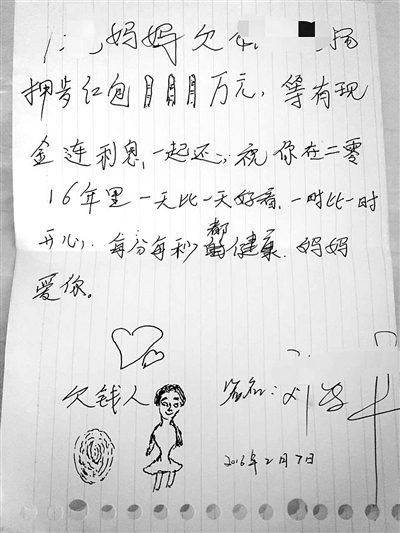 妈妈欠
押岁红包 万元,等有现
金连利息,一起还;祝你在二零
16年里一天比一天好看,一时比一时
开心,每分每秒都健康.妈妈
爱你。
欠钱人
署名:刘
2016年2月7日